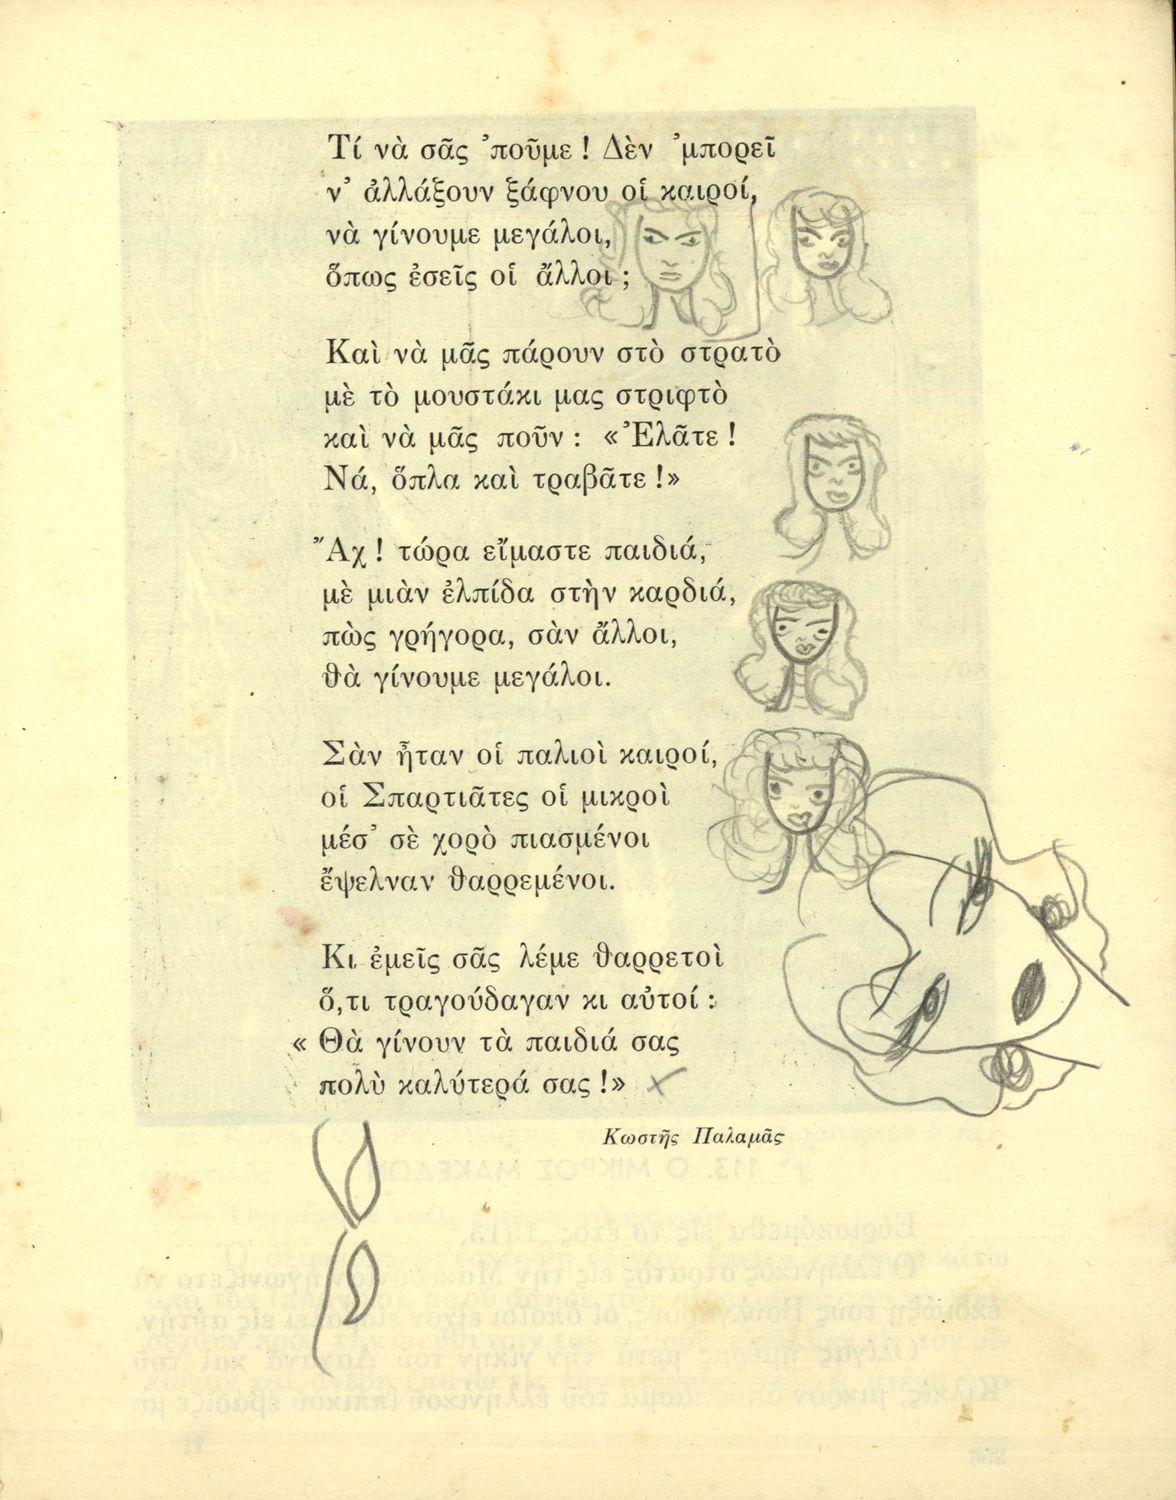 Τί νὰ σᾶς ’ποῦμε ! Δὲν ’μπορεῖ
ν’ ἀλλάξουν ξάφνου οἱ καιροί,
νὰ γίνουμε μεγάλοι,
ὅπως ἐσεῖς οἱ ἄλλοι ;
Καὶ νὰ μᾶς πάρουν στὸ στρατὸ
μὲ τὸ μουστάκι μας στριφτὸ
καὶ νὰ μᾶς ποῦν : «Ἐλᾶτε !
Νά, ὅπλα καὶ τραβᾶτε !»
Ἄχ ! τώρα εἴμαστε παιδιά,
μὲ μιὰν ἐλπίδα στὴν καρδιά,
πὼς γρήγορα, σὰν ἄλλοι,
θὰ γίνουμε μεγάλοι.
Σὰν ἦταν οἱ παλιοὶ καιροί,
οἱ Σπαρτιᾶτες οἱ μικροὶ
μέσ’ σὲ χορὸ πιασμένοι
ἔψελναν θαρρεμένοι.
Κι ἐμεῖς σᾶς λέμε θαρρετοὶ
ὅ,τι τραγούδαγαν κι αὐτοί :
« Θὰ γίνουν τὰ παιδιά σας
πολὺ καλύτερά σας !»
Κωστῆς Παλαμᾶς
113. Ο ΜΙΚΡΟΣ ΜΑΚΕΔΩΝ
Εὑρισκόμεθα εἰς τὸ ἔτος 1913.